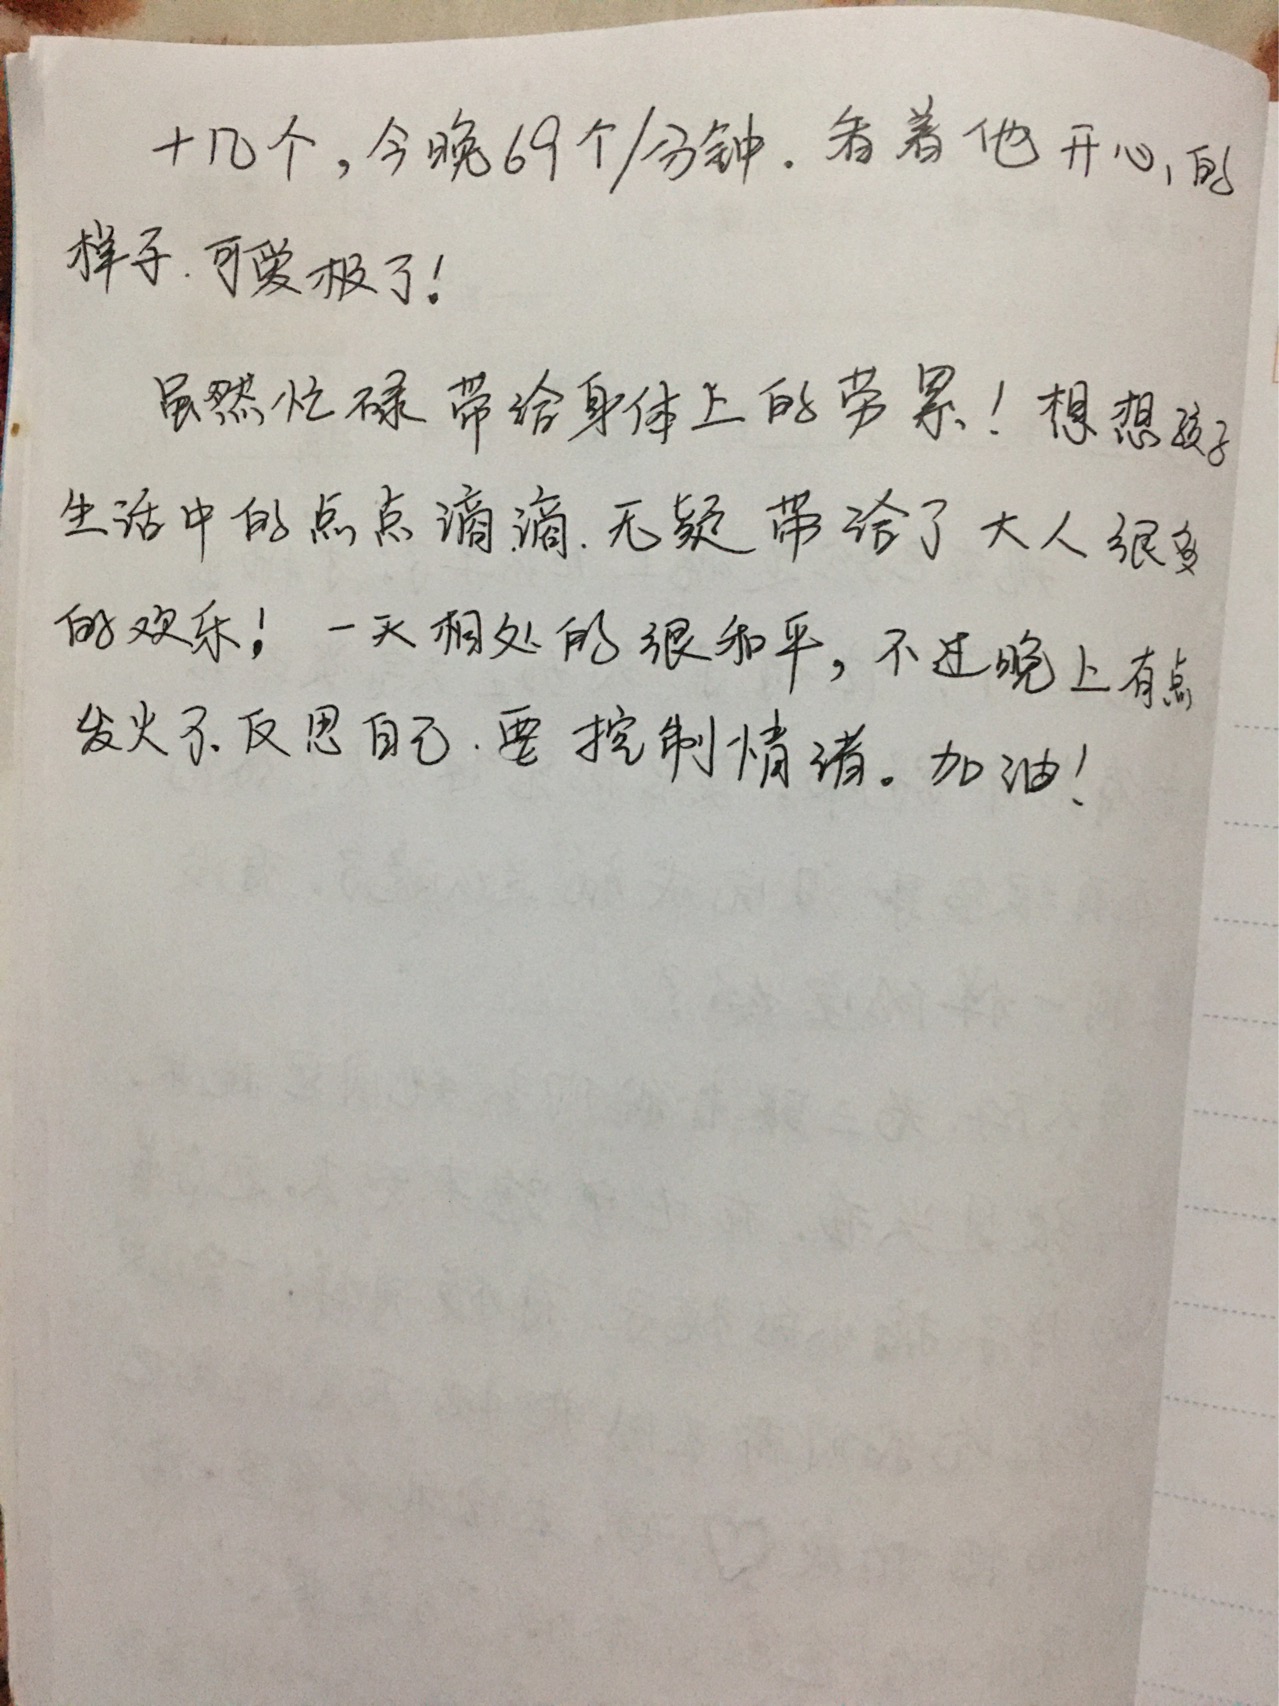 十几个，今晚69个/分钟.看着他开心的
样子.可爱极了！
虽然忙碌带给身体上的劳累！想想孩子
生活中的点点滴滴.无疑带给了大人很多
的欢乐！一天相处的很和平，不过晚上有点
发火了.反思自己.要控制情绪。加油！